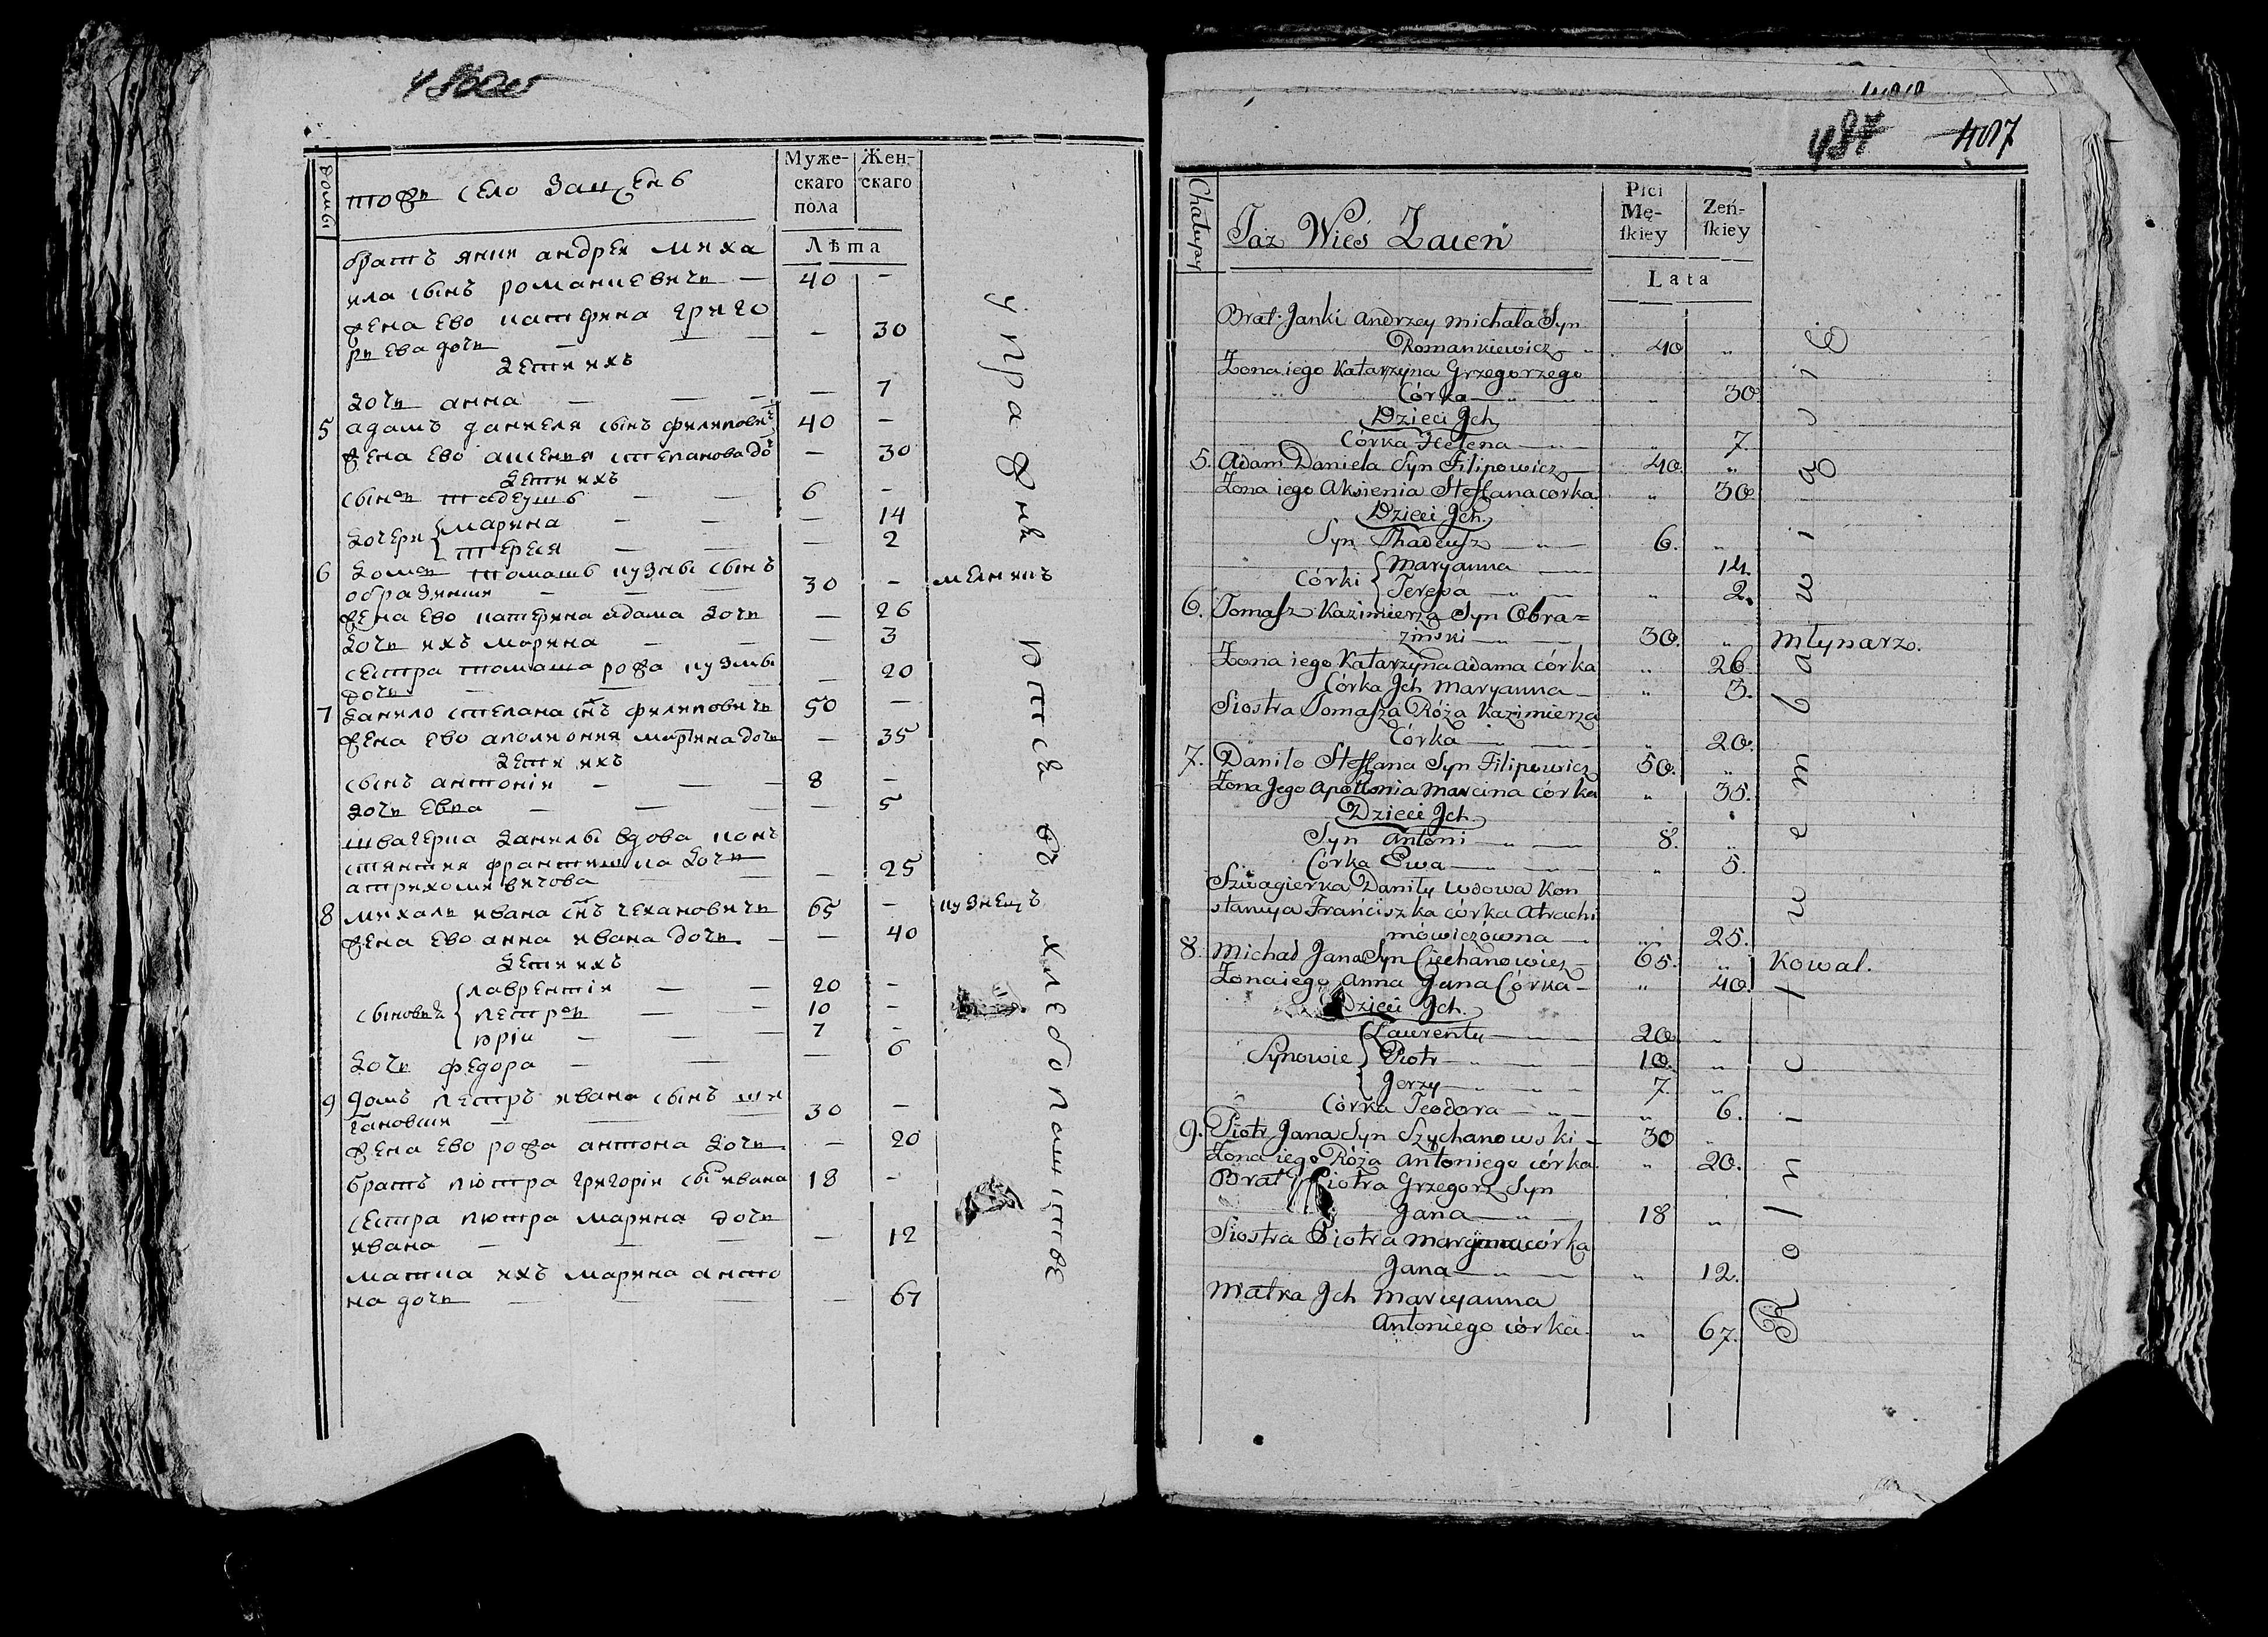 домы
тожъ село Заценъ
Муже-
скаго
пола
Жен-
скаго
Лѣта
братъ янки андрея миха
ила сынъ романкевичъ — 40 —
жена ево катерина григо
рьева дочь — — 30
дети ихъ
дочь анна — — — 7
5 адамъ даниеля сынъ филиповичъ 40 —
жена ево аксенья степанова до — 30
дети ихъ
сынъ тадеушъ — — 6 —
дочери марина — — — 14
тереся — — — 2
6 домъ томашъ кузмы сынъ
образински — — 30 — мелникъ
жена ево катерина адама дочь — 26
дочь ихъ марина — — — 3
сестра томаша рожа кузмы
дочь — — — 20
7 данило степана снъ филиповичъ 50 —
жена ево аполиония мартина дочь — 35
дети ихъ
сынъ антоніи — — 8 —
дочь евка — — — 5
швагерка данилы вдова кон
стянтия франтишка дочь
атрихомивичова — — 25
8 михалъ ивана снъ чехановичъ 65 — кузнецъ
жена ево анна ивана дочь — — 40
дети ихъ
лаврентіи — — 20 —
сыновья петръ — — 10 —
юріи — — 7 —
дочь федора — — — 6
9 домъ петръ ивана сынъ ши
хановски — — 30 —
жена ево рожа антона дочь — 20
братъ пютра григоріи сы ивана 18 —
сестра пютра марина дочь
ивана — — — 12
матка ихъ марина анто
на дочь — — — 67
упражняются въ хлебопашцтве
487 4017
Chałupy
Taż Wieś Zaień
Płci
Mę-
ſkiey
Żeń-
ſkiey
Lata
Brat Janki Andrzey Michała Syn
Romankiewicz 40 "
Żona iego Katarzyna Grzegorzego
Córka " 30
Dzieci Jch
Córka Helena " 7.
5. Adam Daniela Syn Filipowicz 40. "
Żona iego Aksienia Steffana corka " 30
Dzieci Jch.
Syn Thadeusz 6. "
Córki Maryanna 14.
Teressa " 2.
6. Tomasz Kazimierza Syn Obra=
zinski 30. " Młynarz.
Żona iego Katarzyna Adama córka " 26.
Córka Jch Maryanna " 3.
Siostra Tomasza Róża Kazimierza
Córka " 20.
7. Daniło Steffana Syn Filipowicz 50. "
Żona Jego Apollonia Marcina córka " 35.
Dzieci Jch.
Syn Antoni 8. "
Córka Ewa " 5.
Szwagierka Daniły wdowa Kon
stancya Franciszka córka Atrachi
mowiczówna " 25.
8. Michał Jana Syn Ciechanowicz 65. " Kowal.
Żona iego Anna Jana Córka " 40.
Dzieci Jch.
Laurenty 20. "
Synowie Piotr 10. "
Jerzy 7. "
Córka Teodora " 6.
9. Piotr Jana Syn Szychanowski 30 "
Żona iego Róża Antoniego córka " 20.
Brat Piotra Grzegorz Syn
Jana 18 "
Siostra Piotra Maryanna córka
Jana " 12.
Matka Jch Maryanna
Antoniego córka " 67.
Rolnictwem bawią się